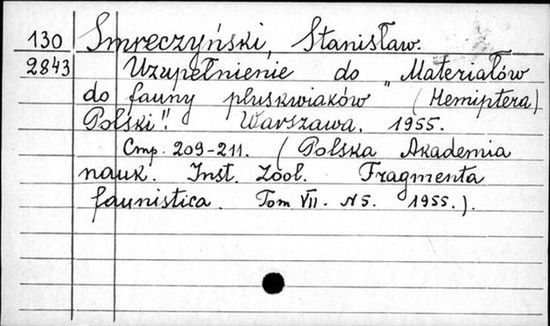 130 Smreczyński, Stanisław.
2843 Uzupełnienie do „Materiałów
do fauny pluskwiaków (Hemiptera)
Polski". Warszawa. 1955.
Стр. 209-211. (Polska Akademia
nauk. Inst. Zool. Fragmenta
faunistica. Tom VII. N 5. 1955.).